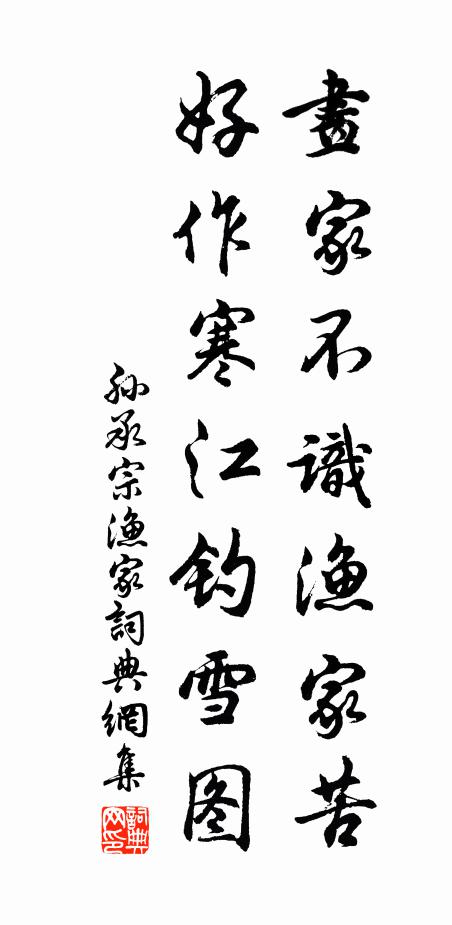 畫家不識漁家苦
好作寒江钓雪图
孙承宗漁家詞典網集
詞典网印